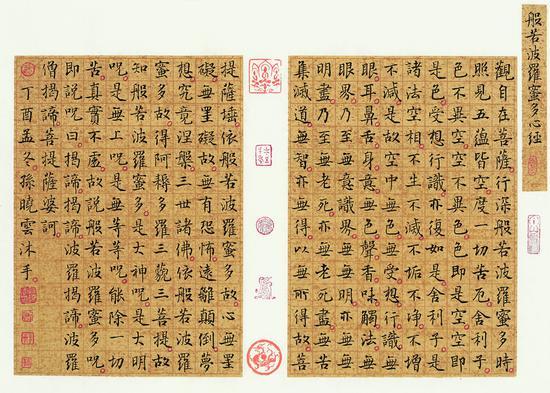 般若波羅蜜多心經
觀自在菩薩行深般若波羅蜜多時
照見五蘊皆空度一切苦厄舍利子
色不異空空不異色色即是空空即
是色受想行識亦復如是舍利子是
諸法空相不生不滅不垢不淨不增
不減是故空中無色無受想行識無
眼耳鼻舌身意無色聲香味觸法無
眼界乃至無意識界無無明亦無無
明盡乃至無老死亦無老死盡無苦
集滅道無智亦無得以無所得故菩
提薩埵依般若波羅蜜多故心無罣
礙無罣礙故無有恐怖遠離顛倒夢
想究竟涅槃三世諸佛依般若波羅
蜜多故得阿耨多羅三藐三菩提故
知般若波羅蜜多是大神呪是大明
呪是無上呪是無等等呪能除一切
苦真實不虛故說般若波羅蜜多呪
即說呪曰揭諦揭諦波羅揭諦波羅
僧揭諦菩提薩婆訶
丁酉孟冬孫曉雲沐手